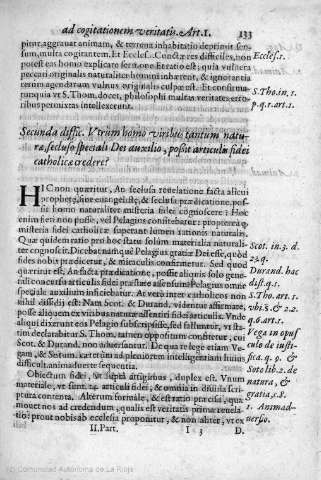 ad cogitationem veritatis. Art. I. 133
pimit, aggrauat animam, & terrena inhabitatio deprimit sen-
sum, multa cogitantem. Et Eccles. Cunctæ res difficiles, non
potest eas homo explicare sermone. Et ratio est; quia vulnera
peccati originalis naturaliter homini inhærent, & ignorantia
rerum agendarum vulnus originalis culpæ est. Et confirma-
tur: quia vt S. Thom. docet, philosophi multas veritates erro-
ribus permixtas intellexerunt.
Eccles. 1.
S. Tho. in. 1.
p. q. 1. art. 1.
Secunda diffic. Vtrum homo viribus tantum natu-
ræ, secluso speciali Dei auxilio, possit articulis fidei
catholicæ credere?
HIC non quæritur, An seclusa reuelatione facta alicui
prophetæ, siue euangelistæ, & seclusa prædicatione, pos-
sit homo naturaliter misteria fidei cognoscere: Hoc
enim fieri non posse, vel Pelagius confitebatur: propterea q
misteria fidei catholicæ superant lumen rationis naturalis.
Quæ quidem ratio pro hoc statu solùm materialia naturali-
ter cognoscit. Dicebat namque Pelagius gratiæ Dei esse, quòd
fides nobis prædicetur, & miraculis confirmetur. Sed quod
quæritur est, An facta prædicatione, possit aliquis solo gene-
rali concursu articulis fidei præstare assensum: Pelagius omne
speciale auxilium inficiebatur. At verò inter catholicos non
nihil dissidij est: Nam Scot. & Durand. videntur affirmare,
posse aliquem ex viribus naturæ assentiri fidei articulis. Vnde
aliqui dixerunt eos Pelagio subscripsisse, sed falluntur, vt sta-
tim declarabitur. S. Thom. tamen oppositum confitetur, cui
Scot. & Durand. non aduersantur. De qua re lege etiam Ve-
gam, & Sotum. cæterùm ad pleniorem intelligentiam huius
difficult. animaduerte sequentia.
Scot. in 3. d.
23. q.
Durand. hac
dist. q. 1.
S. Tho. art. 1.
vbi s. & 2. 2.
q. 6. art. 1.
Vega in opus
culo de iusti-
fica. q. 9. &
Soto lib. 2. de
natura, &
gratia, c. 8.
Obiectum fidei, vt suprà attigimus, duplex est. Vnum
materiale, vt sunt 14. articuli fidei, & omnia in diuina scri-
ptura contenta. Alterum formale, & est ratio præcisa, qua
mouet nos ad credendum, qualis est veritas prima reuela-
tio: prout nobis ab ecclesia proponitur, & non aliter, vt ex
1. Animad-
uersio.
II. Part. I 3 D.
(c) Comunidad Autónoma de La Rioja